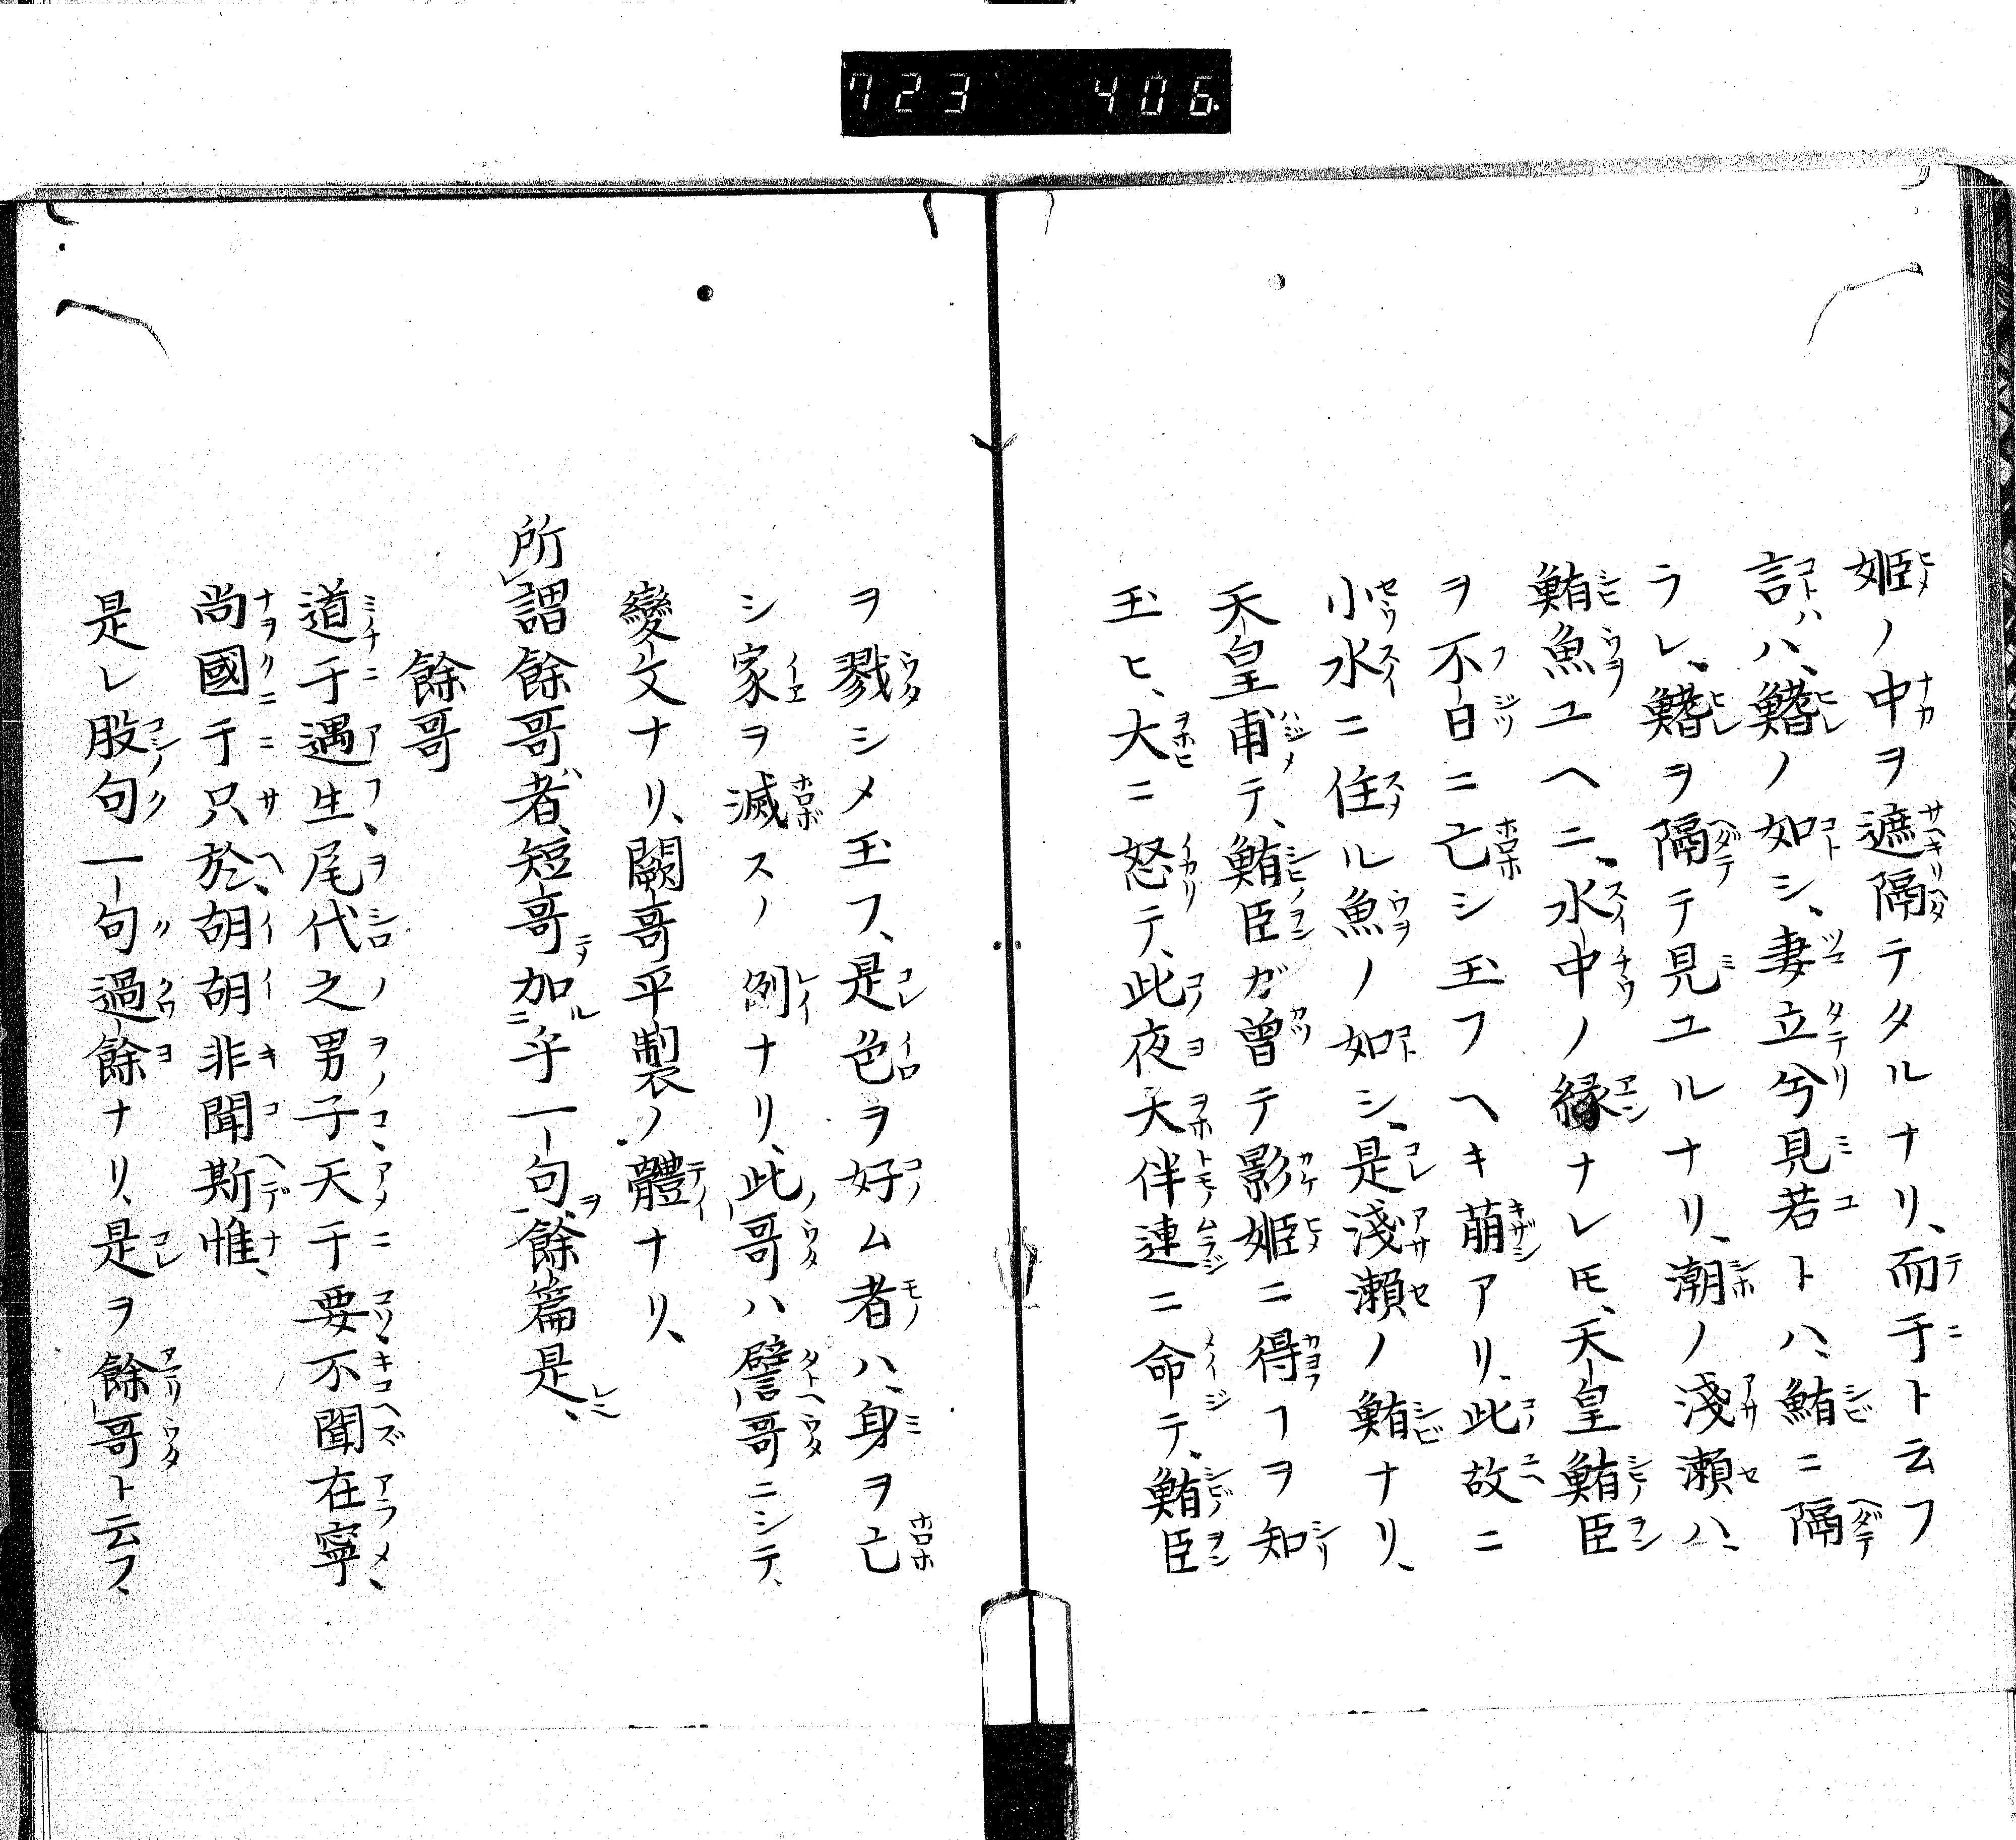 723 406
姫ノ中ヲ遮隔テタルナリ、而于ト云フ
言ハ、鰭ノ如シ、妻立兮見若トハ、鮪ニ隔
ラレ、鰭ヲ隔テ見ユルナリ、潮ノ淺瀬ハ、
鮪魚ユヘニ、水中ノ縁ナレモ、天皇鮪臣
ヲ不日ニ亡シ玉フヘキ萠アリ、此故ニ
小水ニ住ル魚ノ如シ、是淺瀬ノ鮪ナリ、
天皇、甫テ、鮪臣ガ曽テ影姫ニ得フヲ知
玉ヒ、大ニ怒テ、此夜大伴連ニ命テ、鮪臣
ヲ戮シメ玉フ、是色ヲ好ム者ハ、身ヲ亡
シ家ヲ滅スノ例ナリ、此哥ハ譬哥ニシテ、
變文ナリ、闕哥平製ノ體ナリ、
所謂餘哥者、短哥加乎一句、餘篇是、
餘哥
道于遇生尾代之男子天于要不聞在寧
尚國于只於胡胡非聞斯惟
是レ股句一句過餘ナリ、是ヲ餘哥ト云フ、